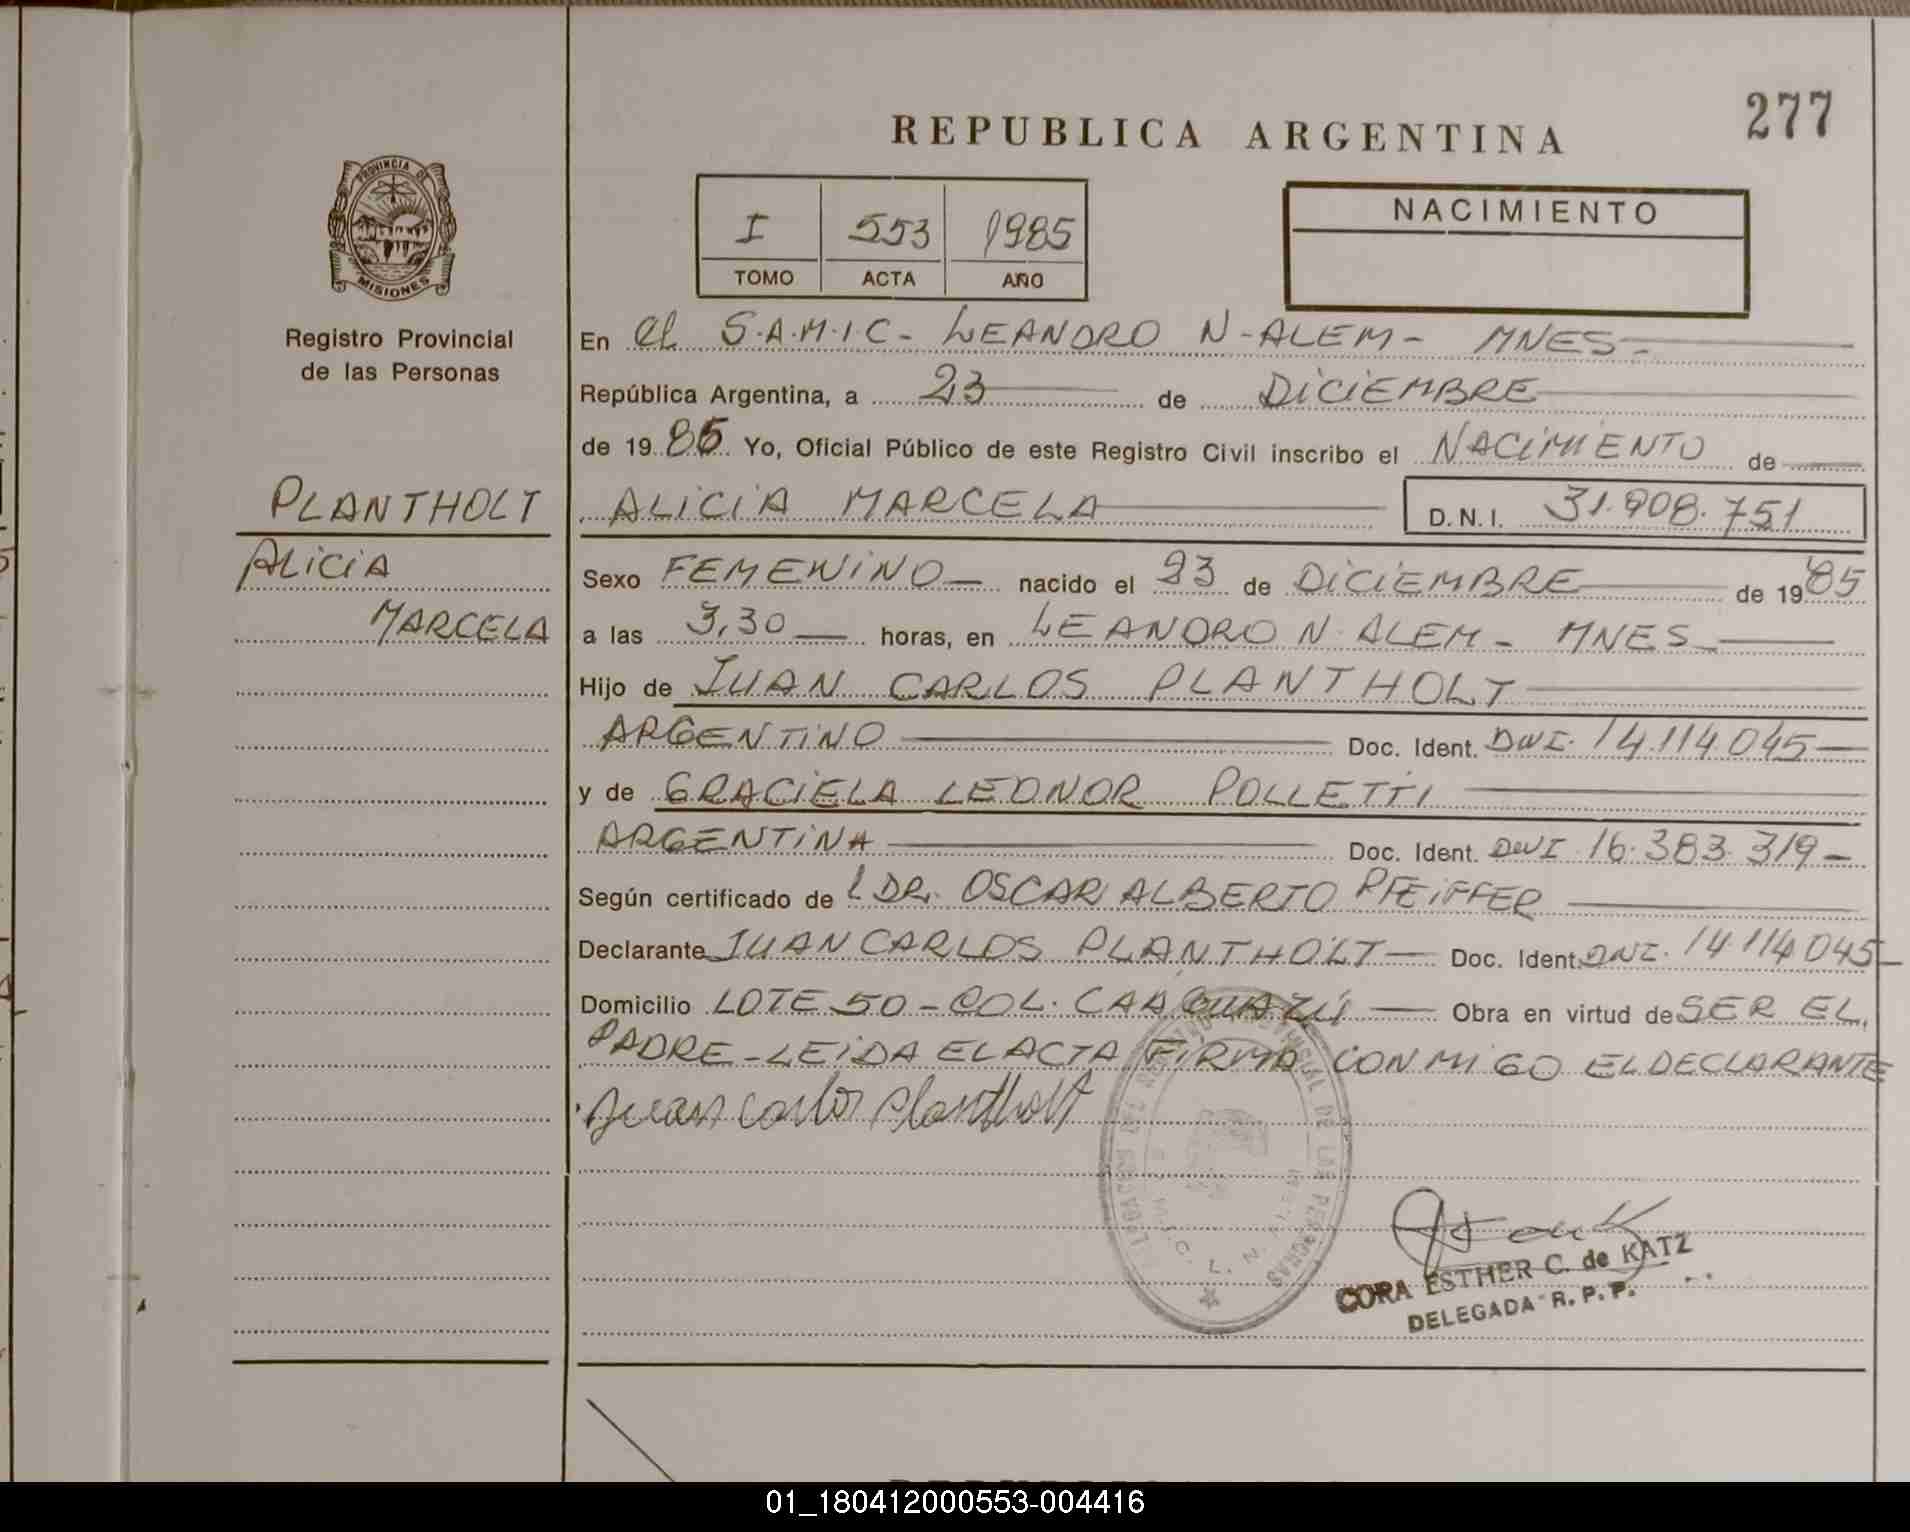 277
REPUBLICA ARGENTINA
PROVINCIA DE
MISIONES
Registro Provincial
de las Personas
I 553 1985
TOMO ACTA AÑO
NACIMIENTO
En el S.A.M.I.C- LEANDRO N-ALEM- MNES-
República Argentina, a 23 de DICIEMBRE
de 19 85 Yo, Oficial Público de este Registro Civil inscribo el NACIMIENTO de
PLANTHOLT
ALICIA MARCELA D.N.I. 31.908.751
ALICIA
MARCELA
Sexo FEMENINO nacido el 23 de DICIEMBRE de 19 85
a las 3,30 horas, en LEANDRO N. ALEM - MNES
Hijo de JUAN CARLOS PLANTHOLT
ARGENTINO Doc. Ident. DNI. 14.114.045
y de GRACIELA LEONOR POLLETTI
ARGENTINA Doc. Ident. DNI 16.383.319-
Según certificado de l DR. OSCAR ALBERTO PFEIFFER
Declarante JUAN CARLOS PLANTHOLT Doc. Ident. DNI. 14.114.045
Domicilio LOTE 50 - COL. CAAGUAZÚ Obra en virtud de SER EL
PADRE - LEIDA EL ACTA FIRMA CONMIGO EL DECLARANTE
Juan carlos Plantholt
CORA ESTHER C. de KATZ
DELEGADA R. P. P.
01_180412000553-004416